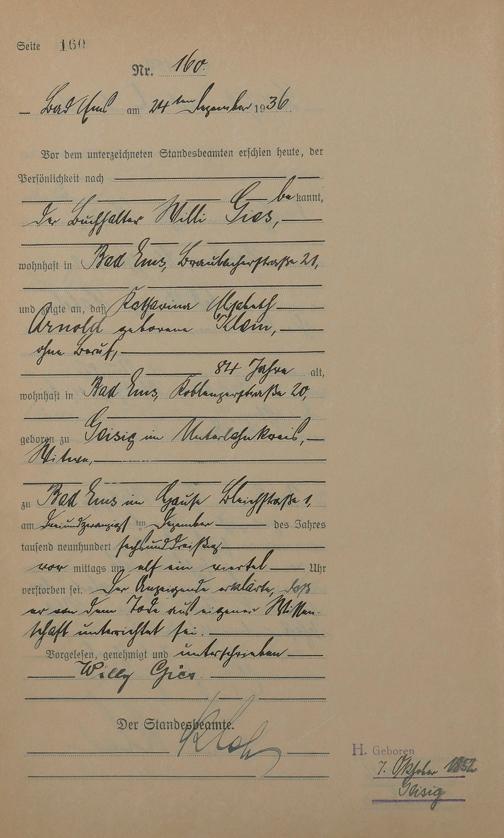 Seite 160
Nr. 160.
Bad Ems am 24ten Dezember 1936
Vor dem unterzeichneten Standesbeamten erschien heute, der
Persönlichkeit nach
bekannt,
der Buchhalter Willi Gies,
wohnhaft in Bad Ems, Braubacherstraße 21,
und zeigte an, daß Katharina Elsabeth
Arnold geborene Klein,
ohne Beruf,
84 Jahre alt,
wohnhaft in Bad Ems, Koblenzerstraße 20,
geboren zu Geisig im Unterlahnkreis,
Witwe,
zu Bad Ems im Hause Bleichstraße 1,
am dreiundzwanzigsten Dezember des Jahres
tausend neunhundert sechsunddreißig
vor mittags um elf ein viertel Uhr
verstorben sei. Der Anzeigende erklärte, daß
er von dem Tode aus eigener Wissen-
schaft unterrichtet sei.
Vorgelesen, genehmigt und unterschrieben
Willy Gies
Der Standesbeamte.
H. Geboren
7. Oktober 1852
Geisig